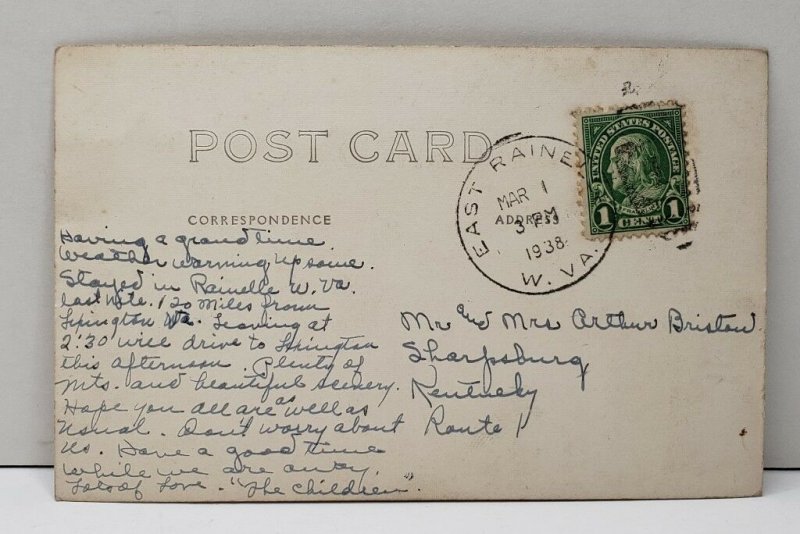 POST CARD
CORRESPONDENCE
ADDRESS
EAST RAINE
MAR 1
3 PM
1938
W. VA.
UNITED STATES POSTAGE
FRANKLIN
1 CENT 1
Having a grand time.
Weather warming up some.
Stayed in Rainelle W. Va.
last Nite. 120 Miles from
Lexington Va. Leaving at
2:30 will drive to Lexington
this afternoon. Plenty of
Mts. and beautiful scenery.
Hope you all are as well as
usual. Don't worry about
us. Have a good time
while we are away.
Lots of Love. "The Children".
Mr and Mrs Arthur Bristow
Sharpsburg
Kentucky
Route 1